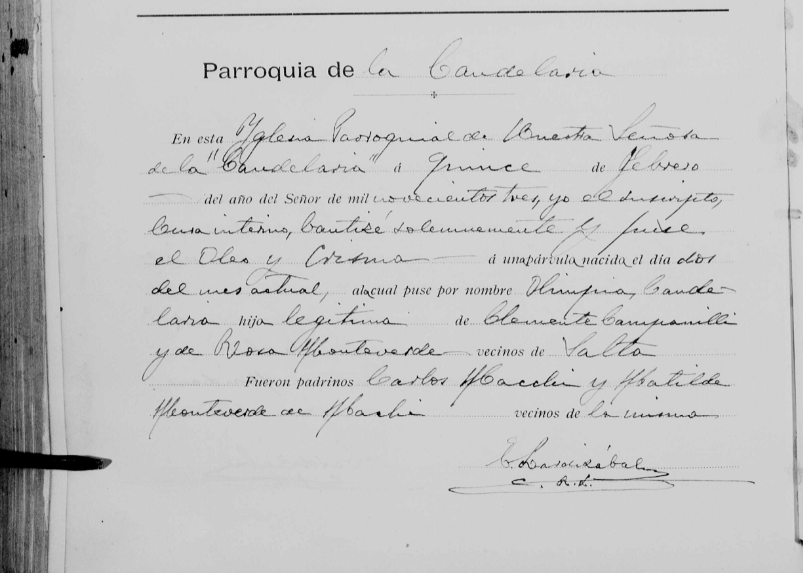 Parroquia de la Candelaria
En esta Yglesia Parroquial de Nuestra Señora
de la "Candelaria" á quince de Febrero
del año del Señor de mil novecientos tres, yo el suscripto,
Cura interino, bauticé solemnemente y puse
el Oleo y Crisma á una párvula nacida el día dos
del mes actual, á la cual puse por nombre Olimpia Cande-
laria hija legitima de Clemente Campanilli
y de Rosa Monteverde vecinos de Salto
Fueron padrinos Carlos Macchi y Matilde
Monteverde de Machi vecinos de la misma
E. Lardizábal